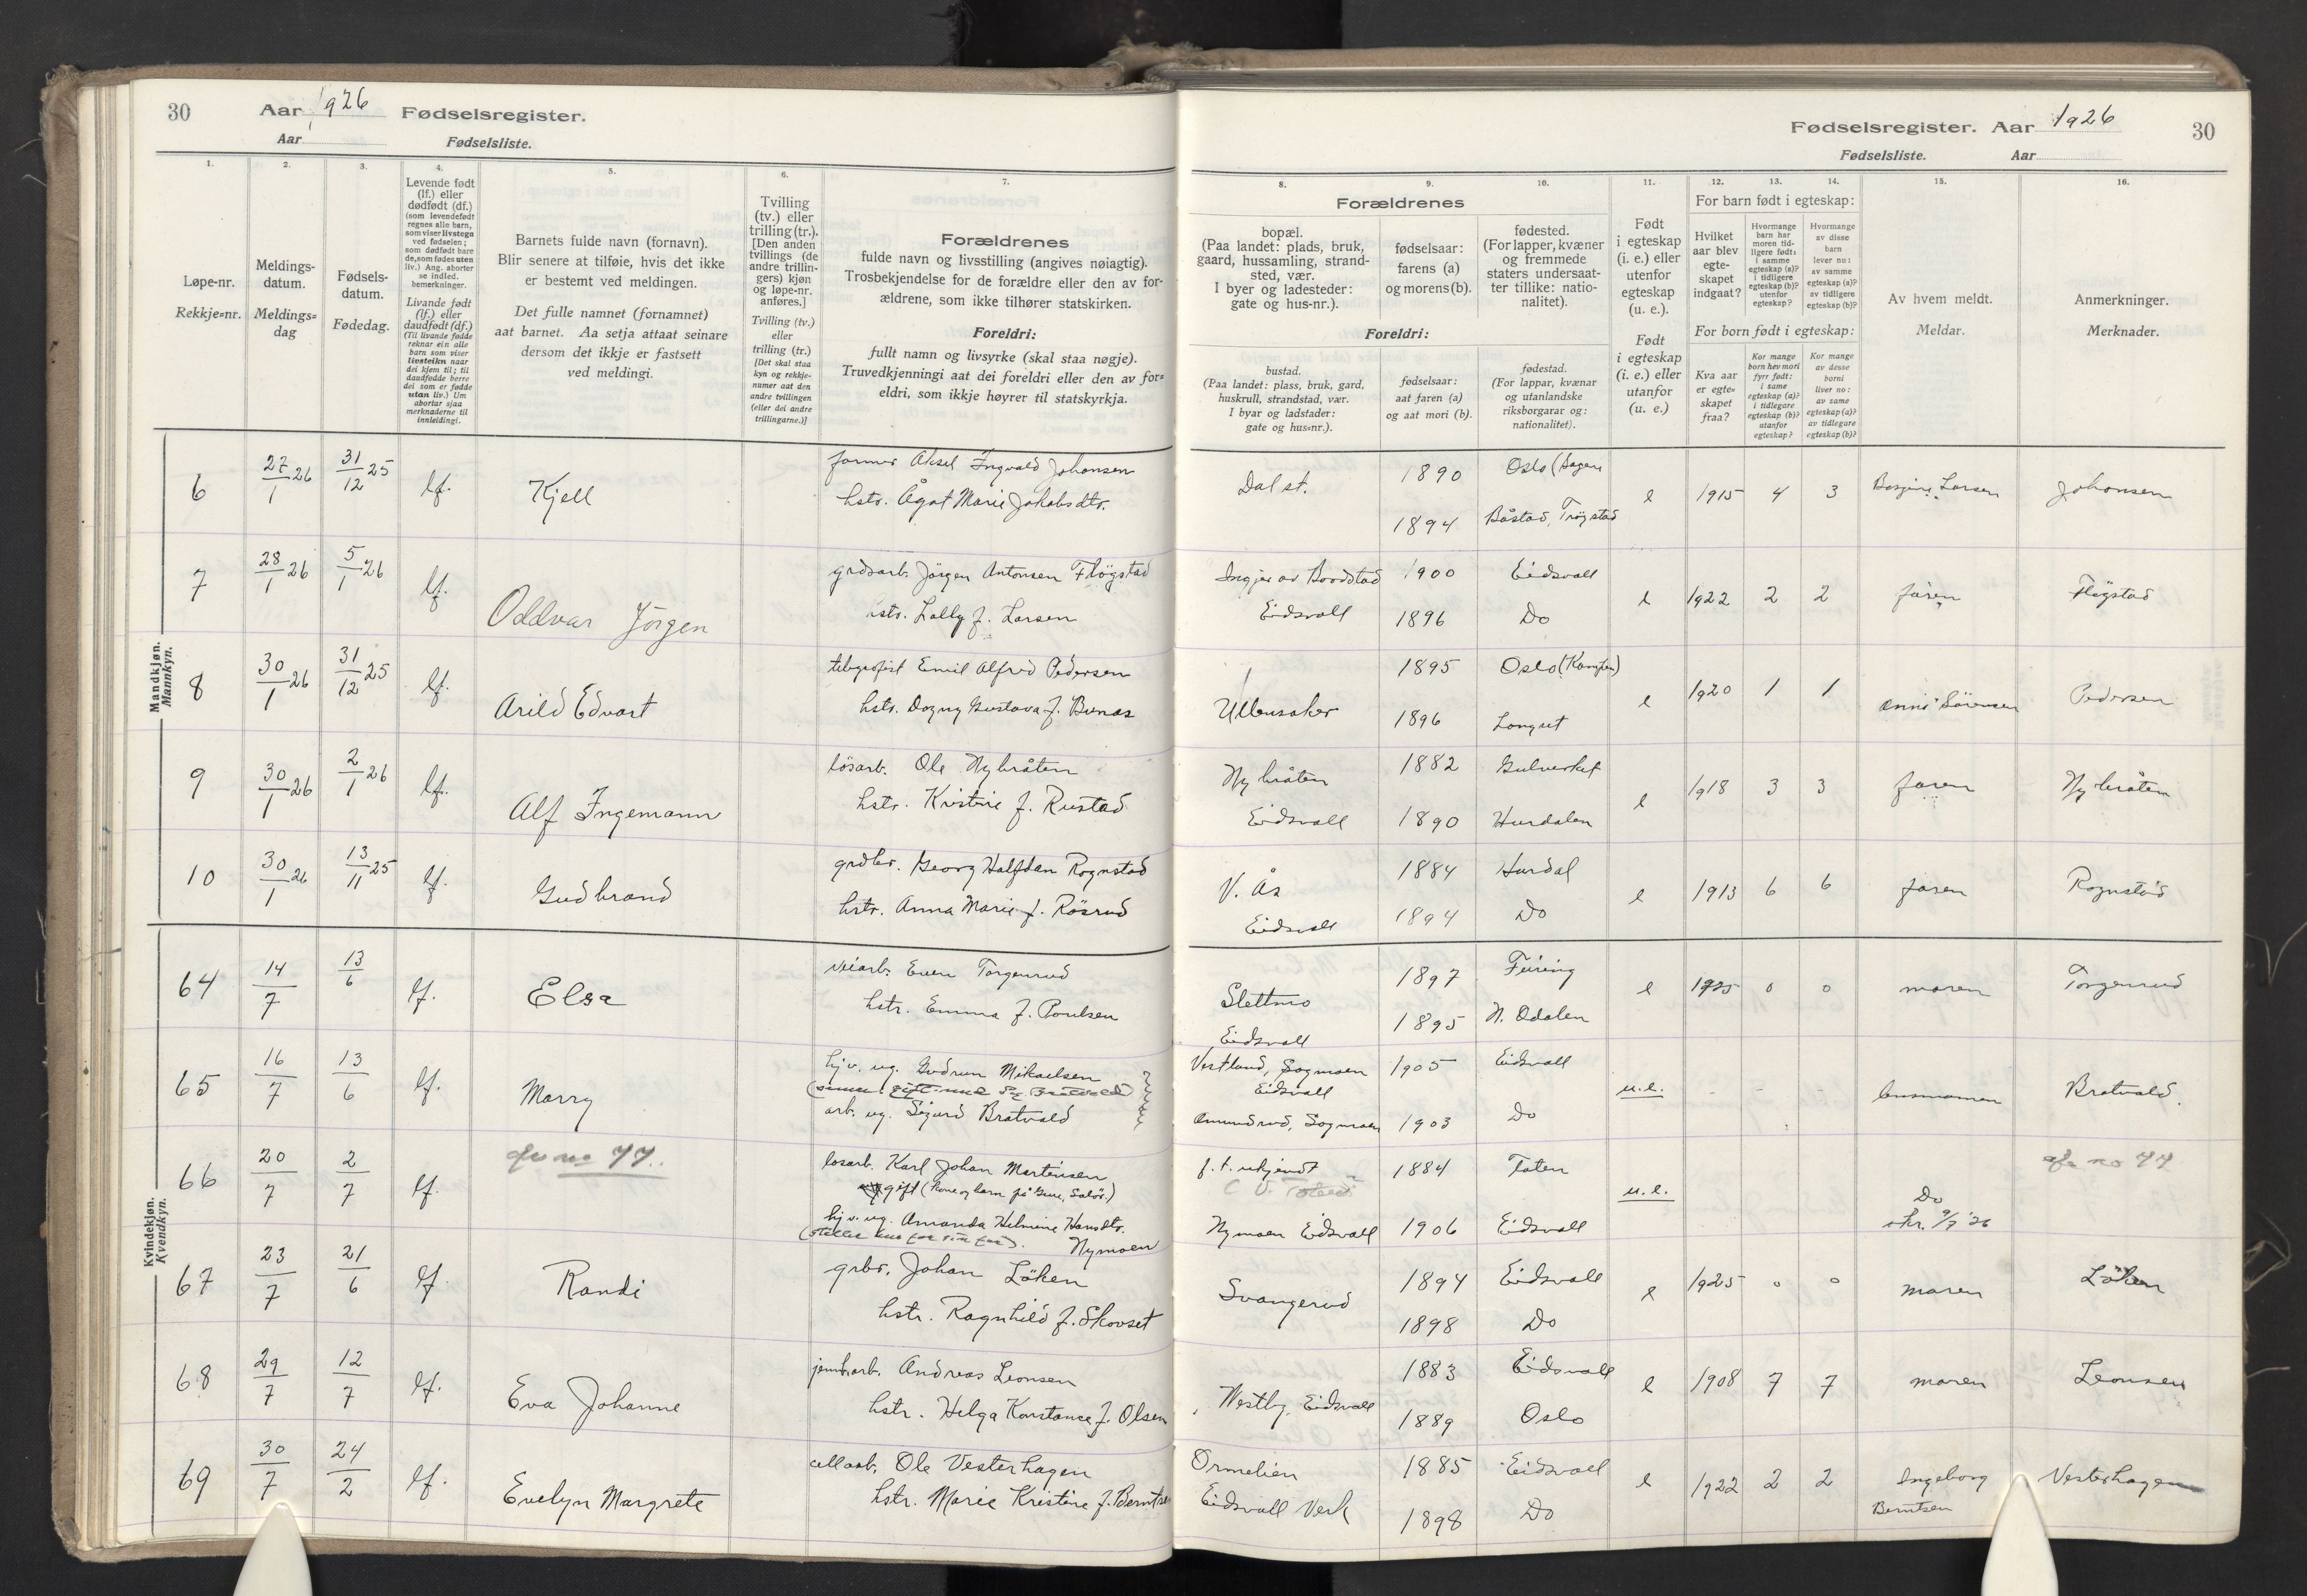 30
Aar 1926
Fødselsregister.
Aar
Fødselsliste.
1.
Løpe-nr.
Rekkje=nr.
2.
Meldings-
datum.
Meldings=
dag
3.
Fødsels-
datum.
Fødedag.
4.
Levende født
(lf.) eller
dødfødt (df.)
(som levendefødt
regnes alle barn,
som viser livstegn
ved fødselen;
som dødfødt bare
de, som fødes uten
liv.) Ang. aborter
se indled.
bemerkninger.
Livande født
(lf.) eller
daudfødt (df.)
(Til livande fødde
reknar ein alle
barn som viser
livsteikn naar
dei kjem til; til
daudfødde berre
dei som er fødde
utan liv.) Um
abortar sjaa
merknaderne til
innleidingi.
5.
Barnets fulde navn (fornavn).
Blir senere at tilføie, hvis det ikke
er bestemt ved meldingen.
Det fulle namnet (fornamnet)
aat barnet. Aa setja attaat seinare
dersom det ikkje er fastsett
ved meldingi.
6.
Tvilling
(tv.) eller
trilling (tr.).
[Den anden
tvillings (de
andre trillin-
gers) kjøn
og løpe-nr.
anføres.]
Tvilling (tv.)
eller
trilling (tr.)
[Det skal staa
kyn og rekkje-
numer aat den
andre tvillingen
(eller dei andre
trillingarne.)]
7.
Forældrenes
fulde navn og livsstilling (angives nøiagtig).
Trosbekjendelse for de forældre eller den av for-
ældrene, som ikke tilhører statskirken.
Foreldri:
fullt namn og livsyrke (skal staa nøgje).
Truvedkjenningi aat dei foreldri eller den av for=
eldri, som ikkje høyrer til statskyrkja.
Mandkjøn.
Mannkyn.
6 27/1 26 31/12 25 lf. Kjell
former Aksel Ingvald Johansen
hstr. Ågot Marie Jakobsdtr.
7 28/1 26 5/1 26 lf. Oddvar Jörgen
grdsarb. Jörgen Antonsen Flögstad
hstr. Lally f. Larsen
8 30/1 26 31/12 25 lf. Arild Edvart
telegrafist Emil Alfred Pedersen
hstr. Dagny Gustava f. Bunæs
9 30/1 26 2/1 26 lf. Alf Ingemann
lösarb. Ole Nybråten
hstr. Kristine f. Rustad
10 30/1 26 13/11 25 lf. Gudbrand
grdbr. Georg Halfdan Rognstad
hstr. Anna Marie f. Rösrud
Kvindekjøn.
Kvendkyn.
64 14/7 13/6 lf. Elsa
veiarb. Even Torgenrud
hstr. Emma f. Poulsen
65 16/7 13/6 lf. Marry
hjv. ug. Gudrun Mikaelsen
arb. ug. Sigurd Bratvald
66 20/7 2/7 lf. no 77.
losarb. Karl Johan Martinsen
gift (kone og barn på Grue, Solör.)
hjv. ug. Amanda Helmine Hansdtr.
Nymoen
67 23/7 21/6 lf Randi
grbr. Johan Löken
hstr. Ragnhild f. Skovset
68 29/7 12/7 lf. Eva Johanne
jernb.arb. Andreas Leonsen
hstr. Helga Konstance f. Olsen
69 30/7 24/2 lf. Evelyn Margrete
cell.arb. Ole Vesterhagen
hstr. Marie Kristine f. Berntsen
Fødselsregister. Aar 1926
30
Fødselsliste. Aar
8.
Forældrenes
bopæl.
(Paa landet: plads, bruk,
gaard, hussamling, strand-
sted, vær.
I byer og ladesteder:
gate og hus-nr.).
Foreldri:
bustad.
(Paa landet: plass, bruk, gard,
huskrull, strandstad, vær.
I byar og ladstader:
gate og hus=nr.).
9.
fødselsaar:
farens (a)
og morens (b).
fødselsaar:
aat faren (a)
og aat mori (b).
10.
fødested.
(For lapper, kvæner
og fremmede
staters undersaat-
ter tillike: natio-
nalitet).
fødestad.
(For lappar, kvænar
og utanlandske
riksborgarar og:
nationalitet).
11.
Født
i egteskap
(i. e.) eller
utenfor
egteskap
(u. e.).
Født
i egteskap
(i. e.) eller
utanfor
(u. e.)
12.
13.
14.
For barn født i egteskap:
Hvilket
aar blev
egte-
skapet
indgaat?
Hvormange
barn har
moren tid-
ligere født:
i samme
egteskap (a)?
i tidligere
egteskap (b)?
utenfor
egteskap?
Hvormange
av disse
barn
lever nu:
av samme
egteskap (a)?
av tidligere
egteskap (b)?
For born født i egteskap:
Kva aar
er egte=
skapet
fraa?
Kor mange
born hev mori
fyrr født:
i same
egteskap (a)?
i tidlegare
egteskap (b)?
utanfor
egteskap?
Kor mange
av desse
borni
liver no:
av same
egteskap (a)?
av tidlegare
egteskap (b)?
15.
Av hvem meldt.
Meldar.
16.
Anmerkninger.
Merknader.
Dal st. 1890 Oslo (Sagene
1894 Båstad, Trögstad
e 1915 4 3 Larsen Johansen
Eidsvoll
1900 Eidsvoll
1896 Do
e 1922 2 2 faren Flögstad
Ullensaker 1895 Oslo (Kampen)
1896 Longset
e 1920 1 1 Anni Sörensen Pedersen
Nybråten 1882 Gulverket
Eidsvoll 1890 Hurdalen
e 1918 3 3 faren Nybråten
V. Ås 1884 Hurdal
Eidsvoll 1894 Do
e 1913 6 6 faren Rognstad
Slettmo 1897 Feiring
Eidsvoll 1895 N. Odalen
e 1925 0 0 moren Torgenrud
Vestlund, Sogmoen 1905 Eidsvoll
Eidsvoll
Amundrud, Sogmoen 1903 Do
u.e. Bratvald.
f.t. ukjendt 1884 Toten
Nymoen Eidsvoll 1906 Eidsvoll
u.e. Do no 77
Svangerud 1894 Eidsvoll
1898 Do
e 1925 0 0 moren Löken
Westby, Eidsvoll 1883 Eidsvoll
1889 Oslo
e 1908 7 7 moren Leonsen
Ormelien 1885 Eidsvoll
Eidsvoll Verk 1898 Do
e 1922 2 2 Ingeborg Berntsen Vesterhagen